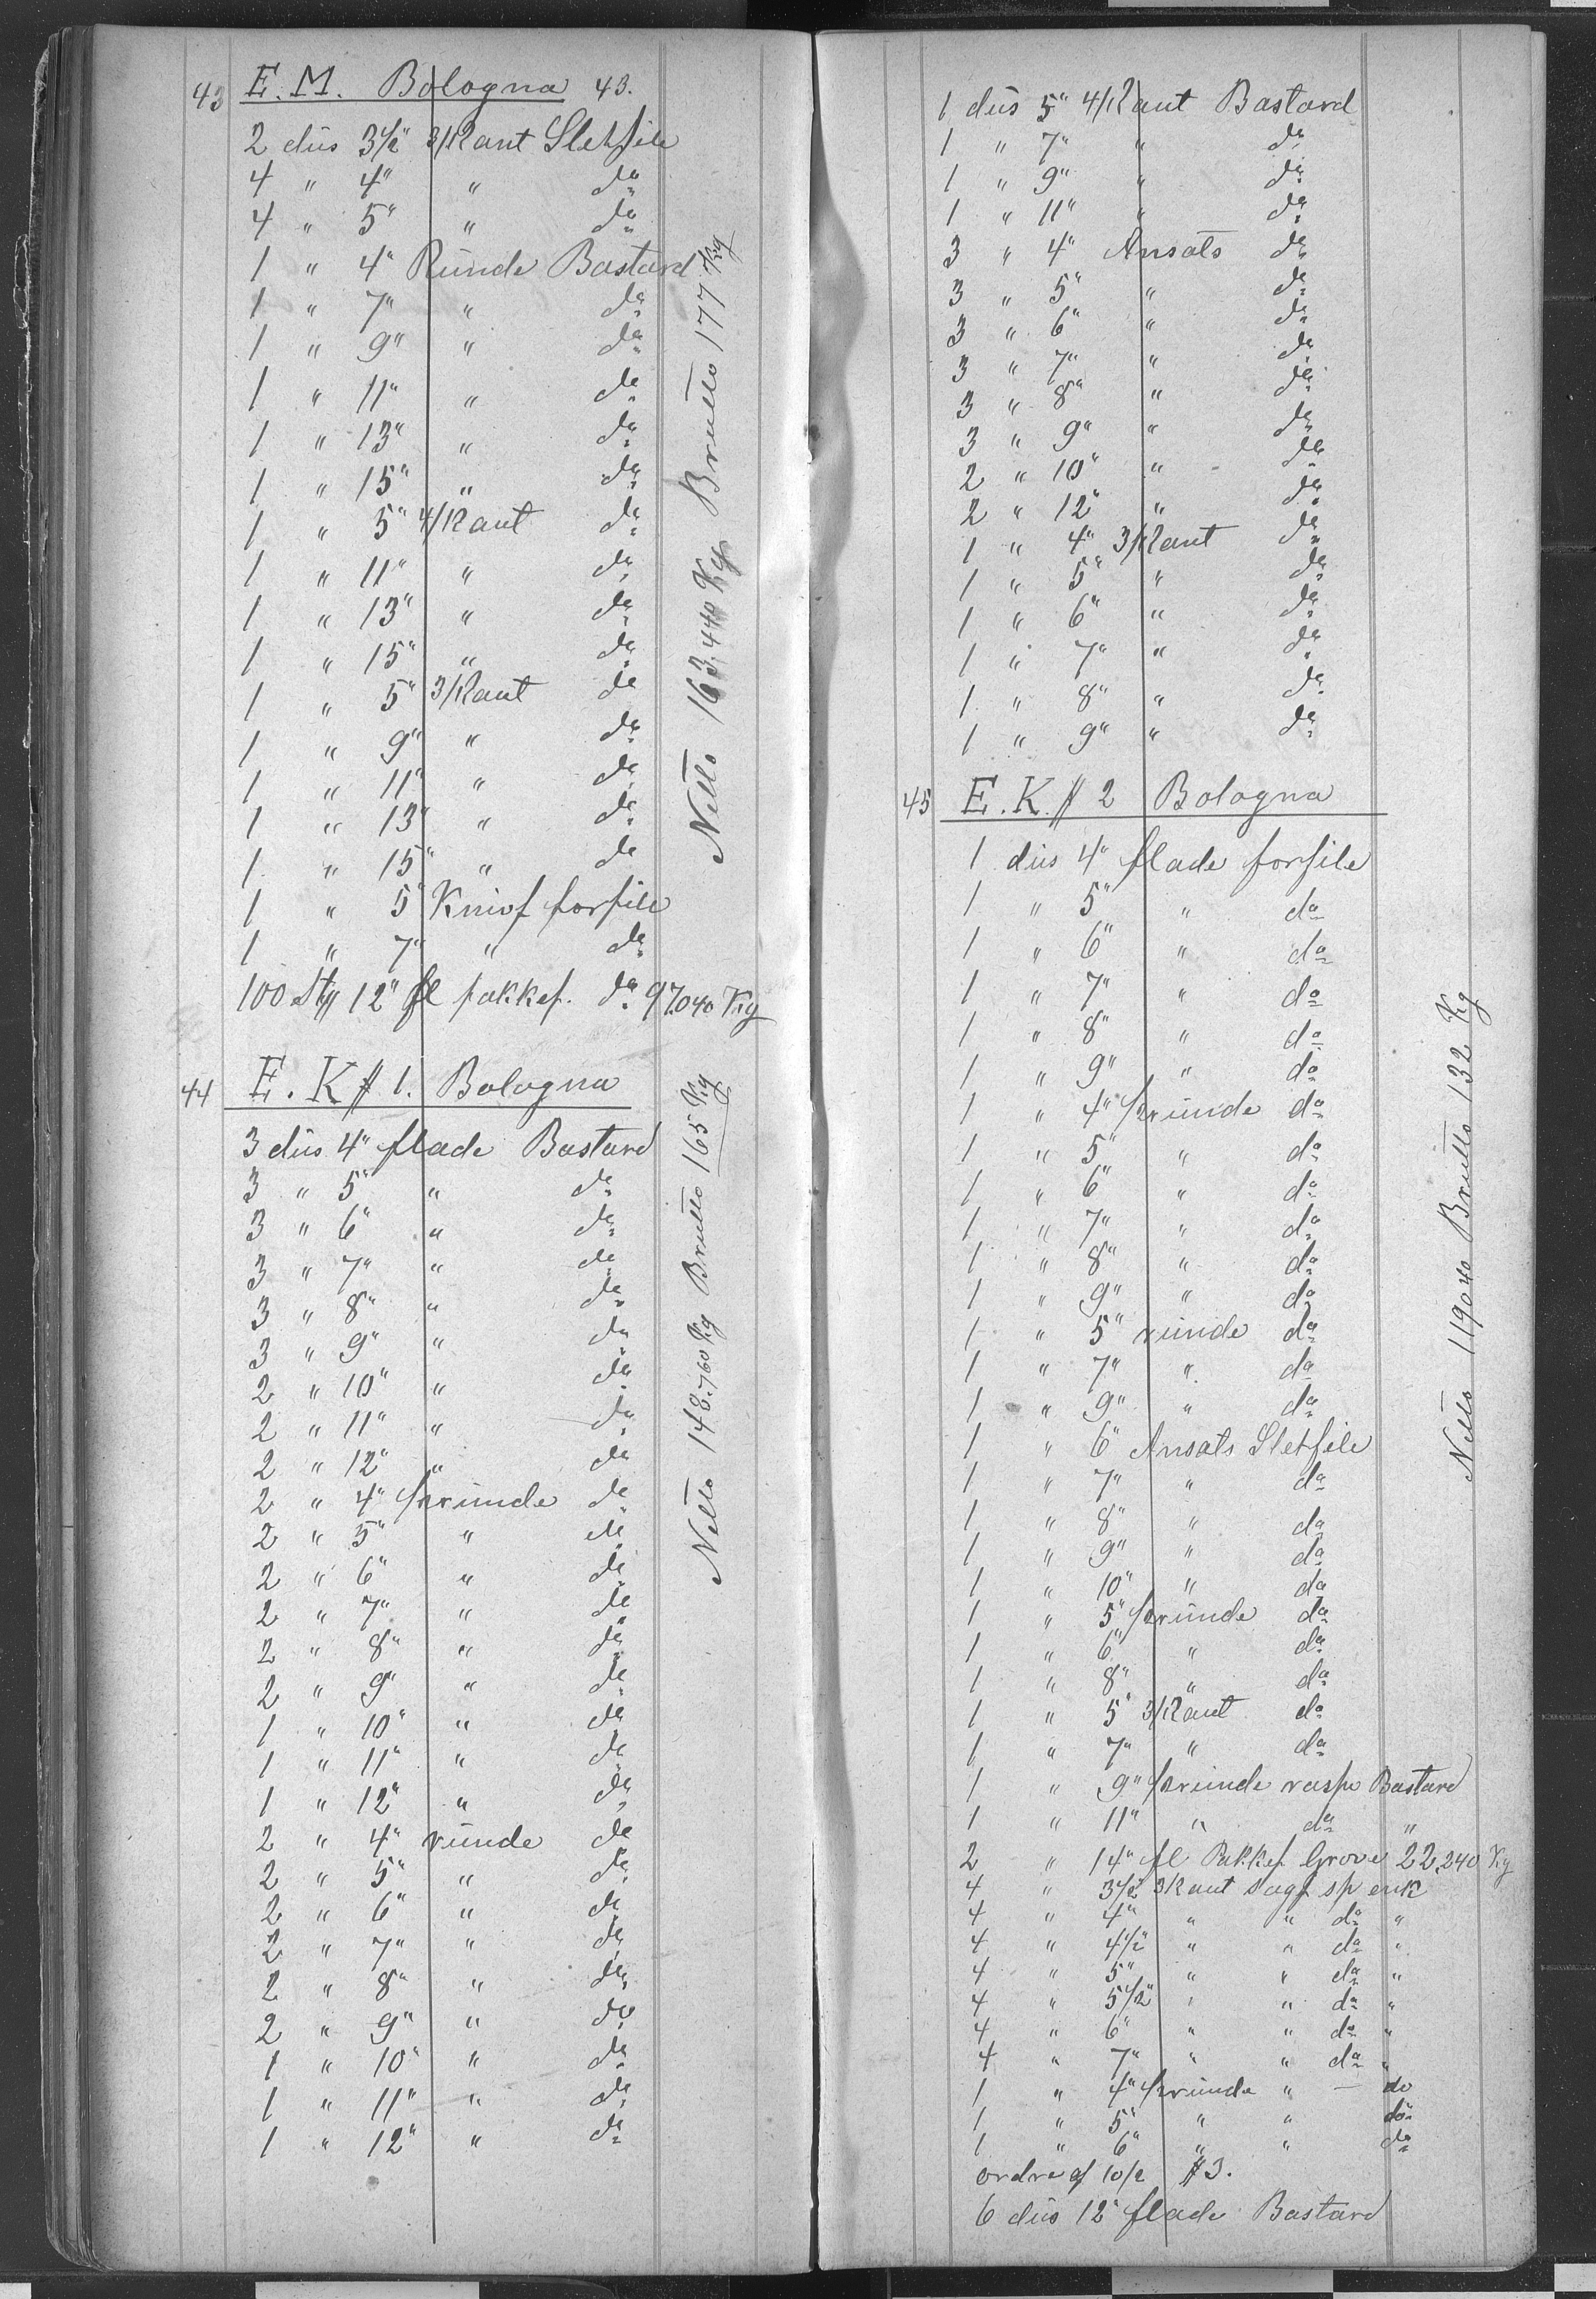 43 E. M. Bologna 43.
2 düs 3½" 3/Kant Sletfile
4 " 4" " do
4 " 5" " do
1 " 4" Runde Bastard
1 " 7" " do
1 " 9" " do
1 " 11" " do
1 " 13" " do
1 " 15" " do
1 " 5" 4/Kant do
1 " 11" " do
1 " 13" " do
1 " 15" " do
1 " 5" 3/Kant do
1 " 9" " do
1 " 11" " do
1 " 13" " do
1 " 15" " do
1 " 5" Knivf forfile
1 " 7" " do
100 Stg 12" fl pakkef. do 97.040 Kg
Netto 163,440 Kg Brutto 177 Kg
44 E. K # 1. Bologna
3 düs 4" flade Bastard
3 " 5" " do
3 " 6" " do
3 " 7" " do
3 " 8" " do
3 " 9" " do
2 " 10" " do
2 " 11" " do
2 " 12" " do
2 " 4" ½ runde do
2 " 5" " do
2 " 6" " do
2 " 7" " do
2 " 8" " do
2 " 9" " do
1 " 10" " do
1 " 11" " do
1 " 12" " do
2 " 4" runde do
2 " 5" " do
2 " 6" " do
2 " 7" " do
2 " 8" " do
2 " 9" " do
1 " 10" " do
1 " 11" " do
1 " 12" " do
Netto 148.760 Kg Brutto 165 Kg
1 düs 5" 4/Kant Bastard
1 " 7" " do
1 " 9" " do
1 " 11" " do
3 " 4" Ansats do
3 " 5" " do
3 " 6" " do
3 " 7" " do
3 " 8" " do
3 " 9" " do
2 " 10" " do
2 " 12" " do
1 " 4" 3/Kant do
1 " 5" " do
1 " 6" " do
1 " 7" " do
1 " 8" " do
1 " 9" " do
45 E. K. # 2 Bologna
1 düs 4" flade forfile
1 " 5" " do
1 " 6" " do
1 " 7" " do
1 " 8" " do
1 " 9" " do
1 " 4" ½ runde do
1 " 5" " do
1 " 6" " do
1 " 7" " do
1 " 8" " do
1 " 9" " do
1 " 5" runde do
1 " 7" " do
1 " 9" " do
1 " 6" Ansats Sletfile
1 " 7" " do
1 " 8" " do
1 " 9" " do
1 " 10" " do
1 " 5" ½ runde do
1 " 6" " do
1 " 8" " do
1 " 5" 3/Kant do
1 " 7" " do
1 " 9" ½ runde rasp Bastard
1 " 11" " do "
2 " 14" fl Pakkef Grove 22,240 Kg
4 " 3½" 3Kant sagf sp enk
4 " 4" " " do "
4 " 4½" " " do "
4 " 5" " " do "
4 " 5½" " " do "
4 " 6" " " do "
4 " 7" " " do "
1 " 4" ½ runde " — do
1 " 5" " " do
1 " 6" " " do
ordre af 10/2 # 3.
6 düs 12" flade Bastard
Netto 119040 Brutto 132 Kg